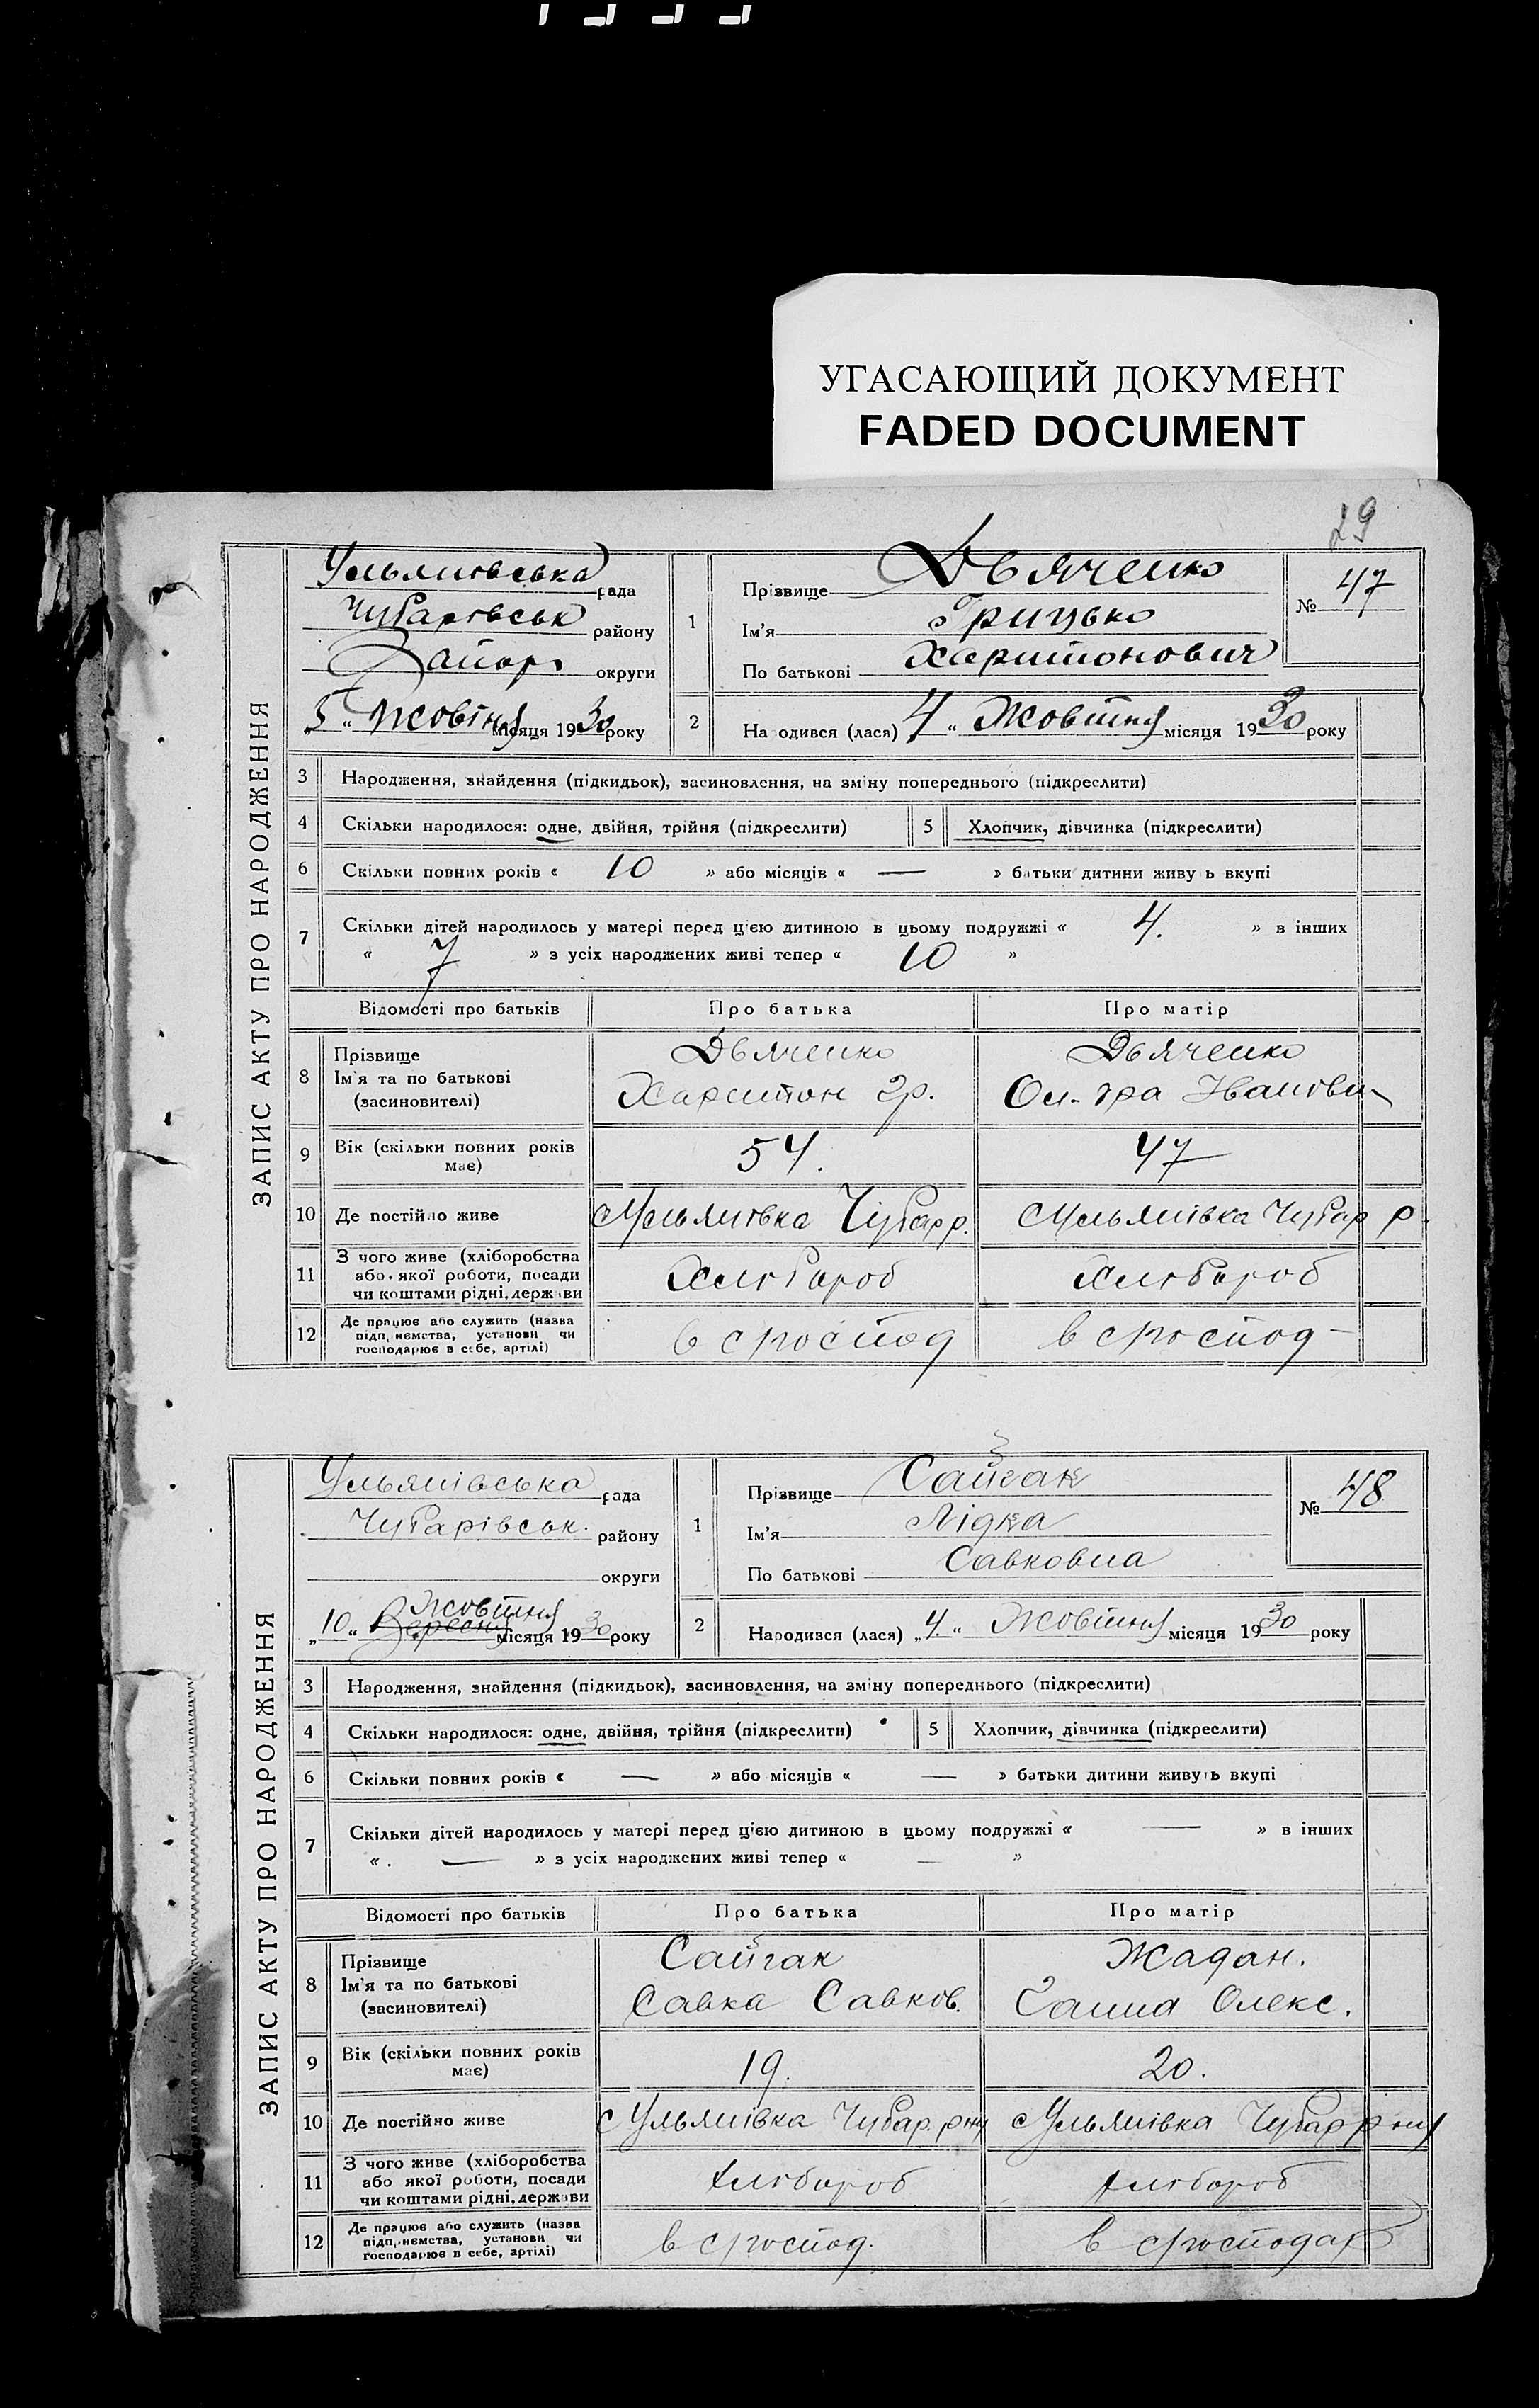 УГАСАЮЩИЙ ДОКУМЕНТ
FADED DOCUMENT
29
ЗАПИС АКТУ ПРО НАРОДЖЕННЯ
Ульянівська рада
Чубарівськ району
Запор округи
"5" Жовтня місяця 1930 року
1 Прізвище Дьяченко
Ім'я Грицько
По батькові Харитонович
№ 47
2 На одився (лася) 4 " Жовтня місяця 1930 року
3 Народження, знайдення (підкидьок), засиновлення, на зміну попереднього (підкреслити)
4 Скільки народилося: одне, двійня, трійня (підкреслити) 5 Хлопчик, дівчинка (підкреслити)
6 Скільки повних років « 10 » або місяців « — » батьки дитини живу ь вкупі
7 Скільки дітей народилось у матері перед цією дитиною в цьому подружжі « 4. » в інших
« 7 » з усіх народжених живі тепер « 10 »
Відомості про батьків Про батька Про матір
8 Прізвище Ім'я та по батькові (засиновителі)
Дьяченко Харитон Гр.
Дьяченко Ол-дра Іванови
9 Вік (скільки повних років має) 54. 47
10 Де постійно живе с Ульянівка Чубар р. с Ульянівка Чубар р.
11 З чого живе (хліборобства або якої роботи, посади чи коштами рідні, держави Хлібороб Хлібороб
12 Де працює або служить (назва підприємства, установи чи господарює в себе, артілі) в с/господ в с/господ-
ЗАПИС АКТУ ПРО НАРОДЖЕННЯ
Ульянівська рада
Чубарівськ. району
округи
"10" Вересня Жовтня місяця 1930 року
1 Прізвище Сайгак
Ім'я Лідка
По батькові Савковна
№ 48
2 Народився (лася) "4." Жовтня місяця 1930 року
3 Народження, знайдення (підкидьок), засиновлення, на зміну попереднього (підкреслити)
4 Скільки народилося: одне, двійня, трійня (підкреслити) 5 Хлопчик, дівчинка (підкреслити)
6 Скільки повних років « — » або місяців « — » батьки дитини живуть вкупі
7 Скільки дітей народилось у матері перед цією дитиною в цьому подружжі « — » в інших
« — » з усіх народжених живі тепер « — »
Відомості про батьків Про батька Про матір
8 Прізвище Ім'я та по батькові (засиновителі)
Сайгак Савка Савков.
Жадан. Ганна Олекс.
9 Вік (скільки повних років має) 19. 20.
10 Де постійно живе с Ульянівка Чубар. рну с Ульянівка Чубар р ну
11 З чого живе (хліборобства або якої роботи, посади чи коштами рідні, держави хлібороб хлібороб
12 Де працює або служить (назва підприємства, установи чи господарює в себе, артілі) в с/господ. в с/господар